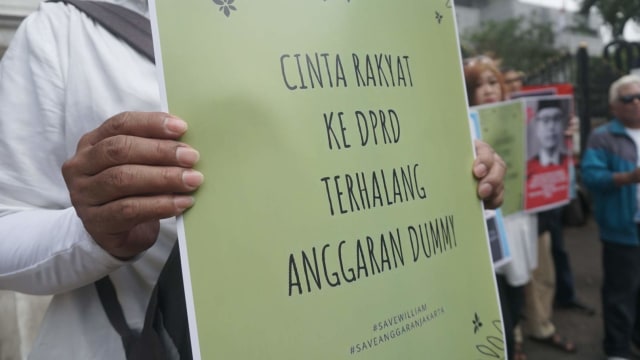 CINTA RAKYAT
KE DPRD
TERHALANG
ANGGARAN DUMMY
#SAVEWILLIAM
#SAVEANGGARANJAKARTA